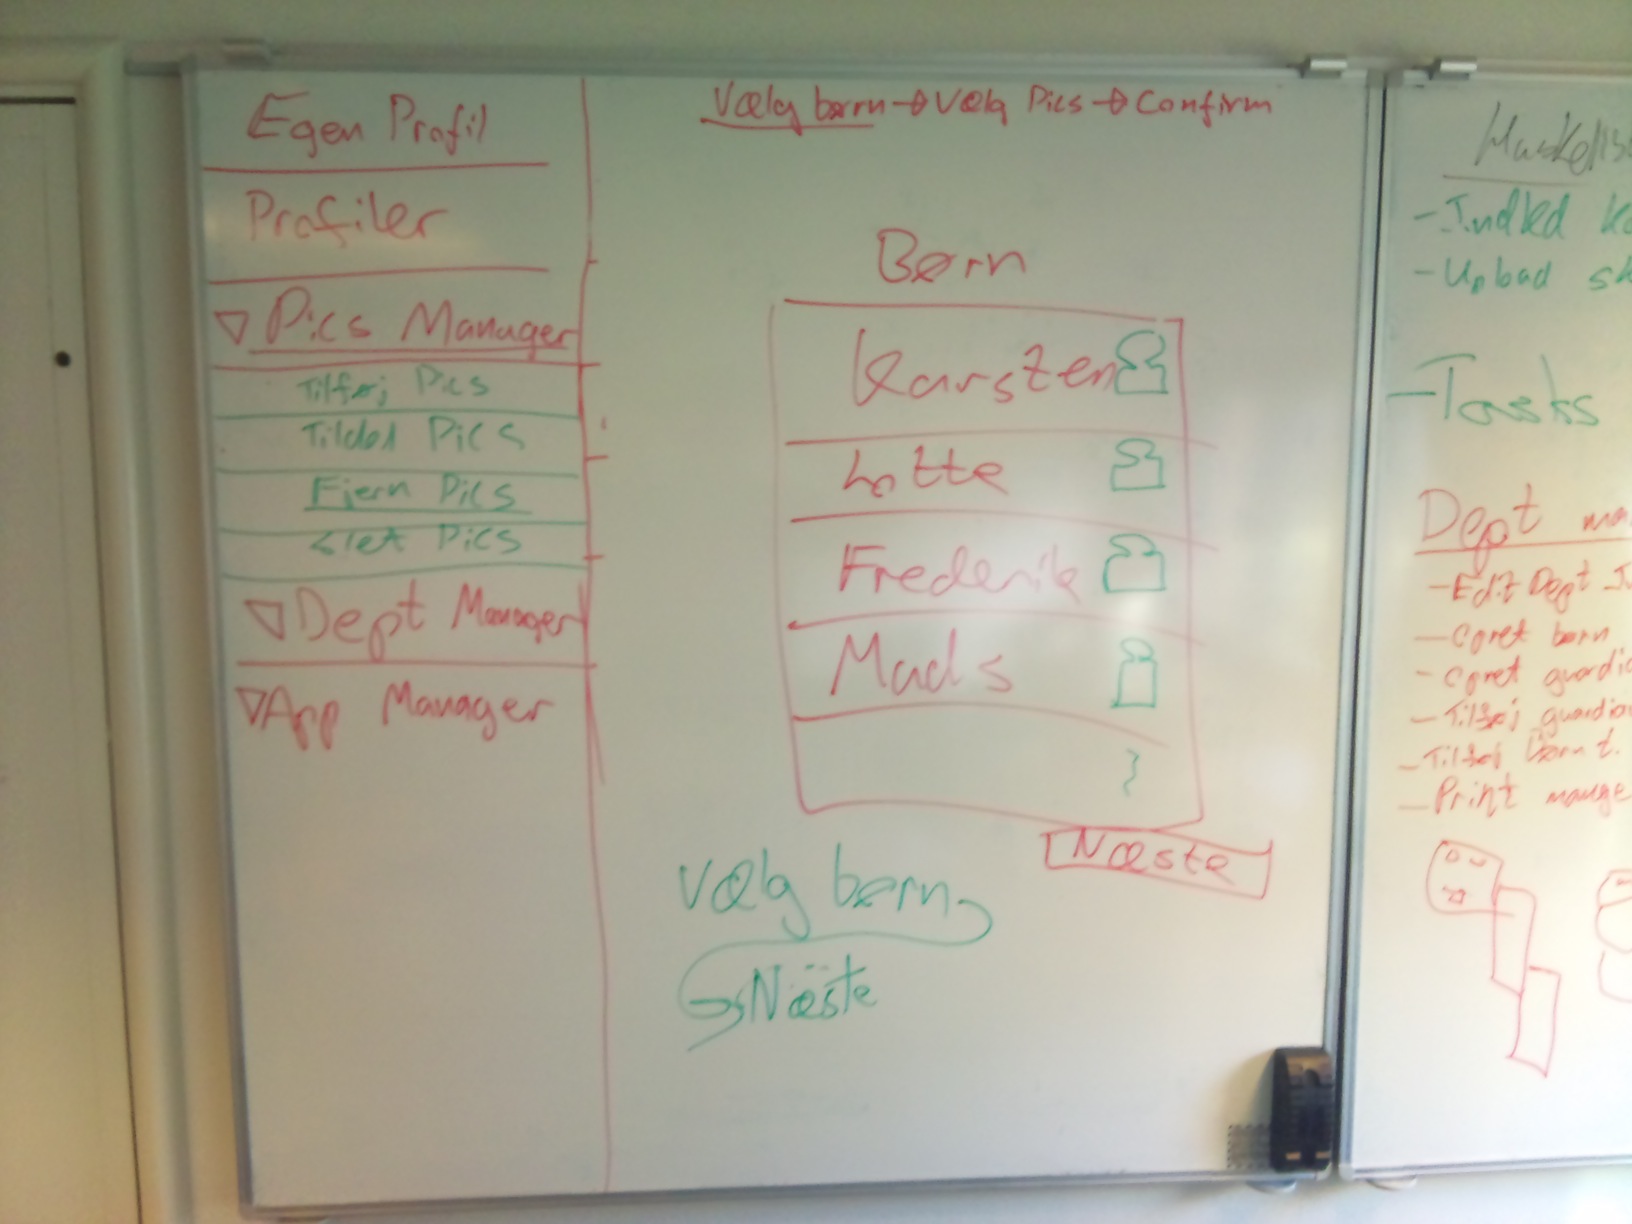 Egen Profil
Profiler
Pics Manager
Tilføj Pics
Tildel Pics
Fjern Pics
Slet Pics
Dept Manager
App Manager
Vælg børn → Vælg Pics → Confirm
Børn
Karsten
Lotte
Frederik
Mads
Næste
Vælg børn
Næste
- Upload
- Tasks
Dept
- Edit Dept
- Opret børn
- Opret
- Tilføj
- Tilføj børn t.
- Print